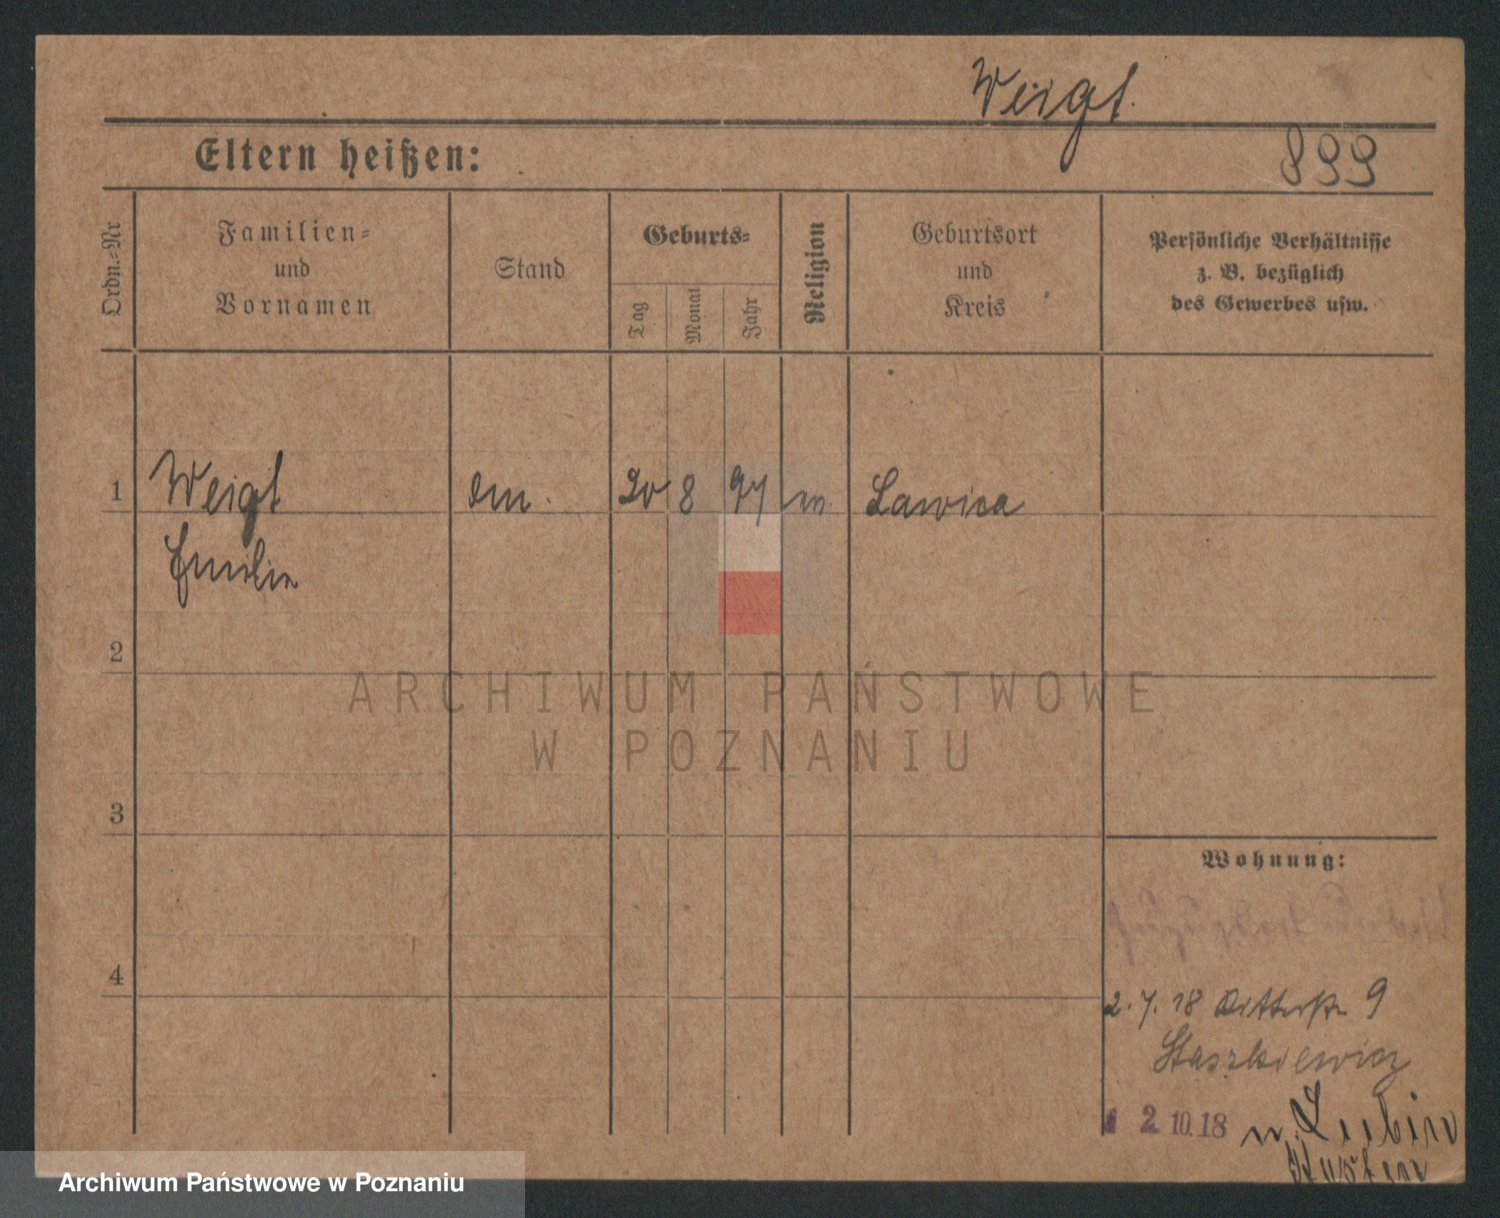 Weigt.
899
Eltern heißen:
Ordn.-Nr
Familien-
und
Vornamen
Stand
Geburts-
Tag
Monat
Jahr
Religion
Geburtsort
und
Kreis
Persönliche Verhältnisse
z. B. bezüglich
des Gewerbes usw.
1 Weigt 20 8 97 Lawica
Emilie
2
ARCHIWUM PAŃSTWOWE
W POZNANIU
3
Wohnung:
4
2.7.18 Ritterstr 9
Staszkiewicz
12 10.18 n. Lubin
Kosten
Archiwum Państwowe w Poznaniu